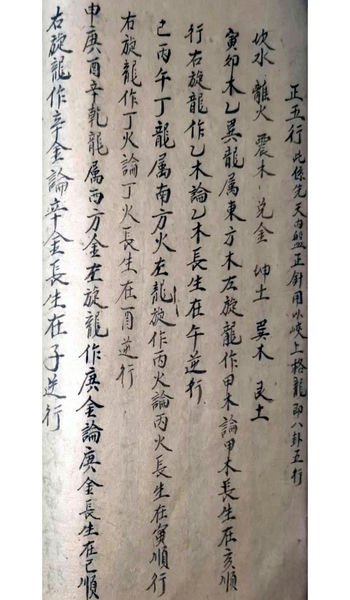 正五行 此係先天內盤正針用以峽上格龍即八卦五行
坎水 離火 震木 兌金 坤土 巽木 艮土
寅卯木乙巽龍属東方木左旋龍作甲木論甲木長生在亥順
行右旋龍作乙木論乙木長生在午逆行
己丙午丁龍属南方火左龍旋作丙火論丙火長生在寅順行
右旋龍作丁火論丁火長生在酉逆行
申庚酉辛乾龍属西方金左旋龍作庚金論庚金長生在己順
右旋龍作辛金論辛金長生在子逆行